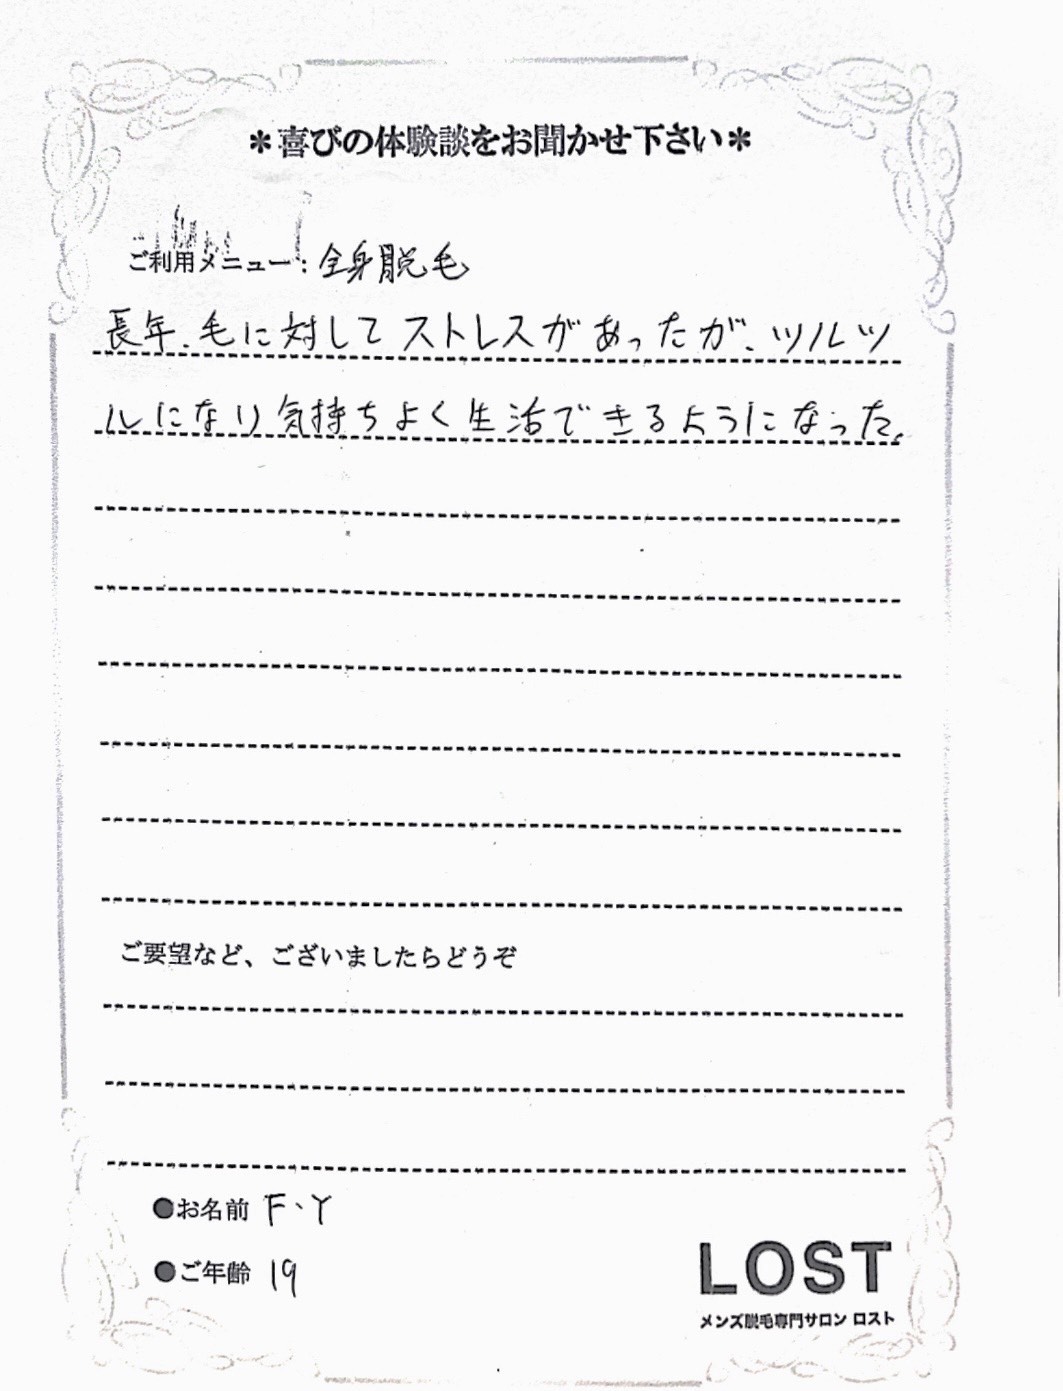 ＊喜びの体験談をお聞かせ下さい＊
ご利用メニュー：全身脱毛
長年、毛に対してストレスがあったが、ツルツ
ルになり気持ちよく生活できるようになった。
ご要望など、ございましたらどうぞ
●お名前 F、Y
●ご年齢 19
LOST
メンズ脱毛専門サロン ロスト